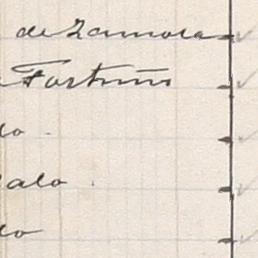 de Zamora
Fortuño
do
alo
do